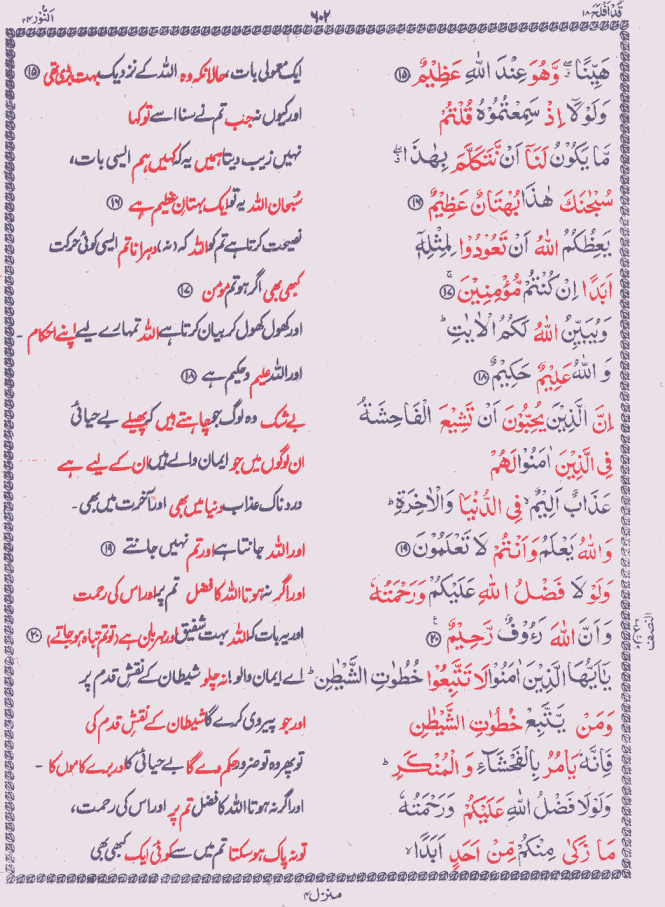 قد افلح ۱۸ ۶۰۲ النور ۲۴
هَيِّنًا ۖ وَّهُوَ عِنْدَ اللّٰهِ عَظِيْمٌ ⑮ ایک معمولی بات، حالانکہ وہ اللہ کے نزدیک بہت بڑی تھی ⑮
وَلَوْلَاۤ اِذْ سَمِعْتُمُوْهُ قُلْتُمْ اور کیوں نہ جب تم نے سنا اسے تو کہا
مَّا يَكُوْنُ لَنَاۤ اَنْ نَّتَكَلَّمَ بِهٰذَا ۖ نہیں زیب دیتا ہمیں یہ کہ کہیں ہم ایسی بات،
سُبْحٰنَكَ هٰذَا بُهْتَانٌ عَظِيْمٌ ⑯ سُبحان اللہ یہ تو ایک بہتانِ عظیم ہے ⑯
يَعِظُكُمُ اللّٰهُ اَنْ تَعُوْدُوْا لِمِثْلِهٖۤ نصیحت کرتا ہے تم کو اللہ کہ (نہ) دہرانا تم ایسی کوئی حرکت
اَبَدًا اِنْ كُنْتُمْ مُّؤْمِنِيْنَ ⑰ کبھی بھی اگر ہو تم مومن ⑰
وَيُبَيِّنُ اللّٰهُ لَكُمُ الْاٰيٰتِ ؕ اور کھول کھول کر بیان کرتا ہے اللہ تمہارے لیے اپنے احکام ۔
وَ اللّٰهُ عَلِيْمٌ حَكِيْمٌ ⑱ اور اللہ علیم و حکیم ہے ⑱
اِنَّ الَّذِيْنَ يُحِبُّوْنَ اَنْ تَشِيْعَ الْفَاحِشَةُ بے شک وہ لوگ جو چاہتے ہیں کہ پھیلے بے حیائی
فِى الَّذِيْنَ اٰمَنُوْا لَهُمْ ان لوگوں میں جو ایمان والے ہیں ان کے لیے ہے
عَذَابٌ اَلِيْمٌ ۙ فِى الدُّنْيَا وَالْاٰخِرَةِ ؕ دردناک عذاب دنیا میں بھی اور آخرت میں بھی۔
وَاللّٰهُ يَعْلَمُ وَاَنْتُمْ لَا تَعْلَمُوْنَ ⑲ اور اللہ جانتا ہے اور تم نہیں جانتے ⑲
وَلَوْ لَا فَضْلُ اللّٰهِ عَلَيْكُمْ وَرَحْمَتُهٗ اور اگر نہ ہوتا اللہ کا فضل تم پر اور اس کی رحمت
وَاَنَّ اللّٰهَ رَءُوْفٌ رَّحِيْمٌ ⑳ اور یہ بات کہ اللہ بہت شفیق اور مہربان ہے (تو تم تباہ ہو جاتے) ⑳
يٰۤاَيُّهَا الَّذِيْنَ اٰمَنُوْا لَا تَتَّبِعُوْا خُطُوٰتِ الشَّيْطٰنِ ؕ اے ایمان والو! نہ چلو شیطان کے نقشِ قدم پر
وَمَنْ يَّتَّبِعْ خُطُوٰتِ الشَّيْطٰنِ اور جو پیروی کرے گا شیطان کے نقشِ قدم کی
فَاِنَّهٗ يَاْمُرُ بِالْفَحْشَآءِ وَ الْمُنْكَرِ ؕ تو پھر وہ تو ضرور حکم دے گا بے حیائی کا اور برے کاموں کا ۔
وَلَوْلَا فَضْلُ اللّٰهِ عَلَيْكُمْ وَرَحْمَتُهٗ اور اگر نہ ہوتا اللہ کا فضل تم پر اور اس کی رحمت،
مَا زَكٰى مِنْكُمْ مِّنْ اَحَدٍ اَبَدًا ۙ تو نہ پاک ہو سکتا تم میں سے کوئی ایک کبھی بھی
النصف
منزل ۴